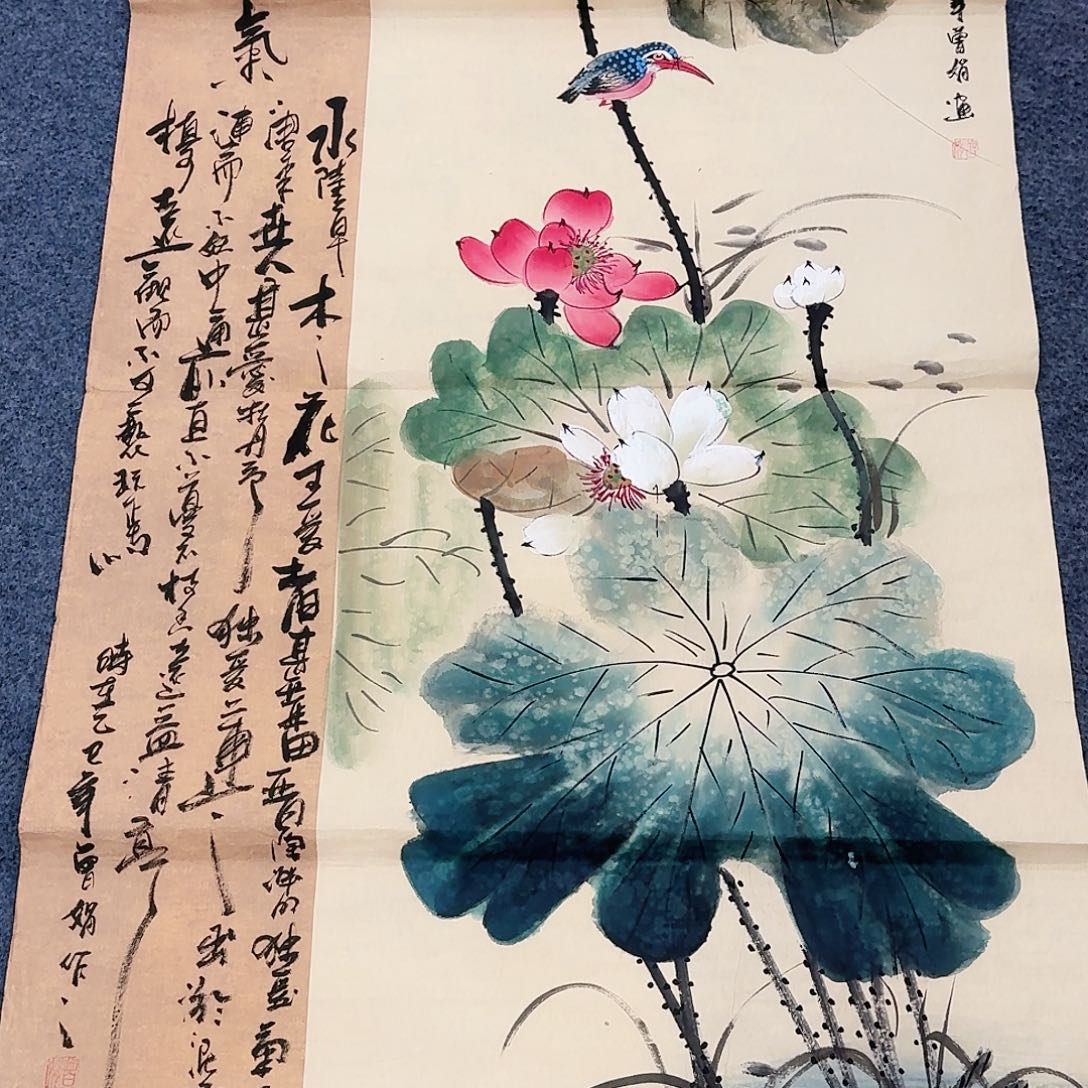 年曾娟畫
氣
水陸草木之花可愛者甚蕃晉陶淵明独愛菊
唐來世人甚愛牡丹予独愛蓮之出淤泥
漣而不妖中通外直不蔓不枝香遠益清亭
植可遠觀而不可褻玩焉
時在乙巳年曾娟作